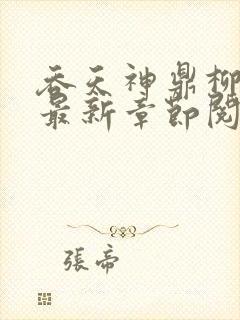 吞天神鼎柳
最新章節閱
張帝